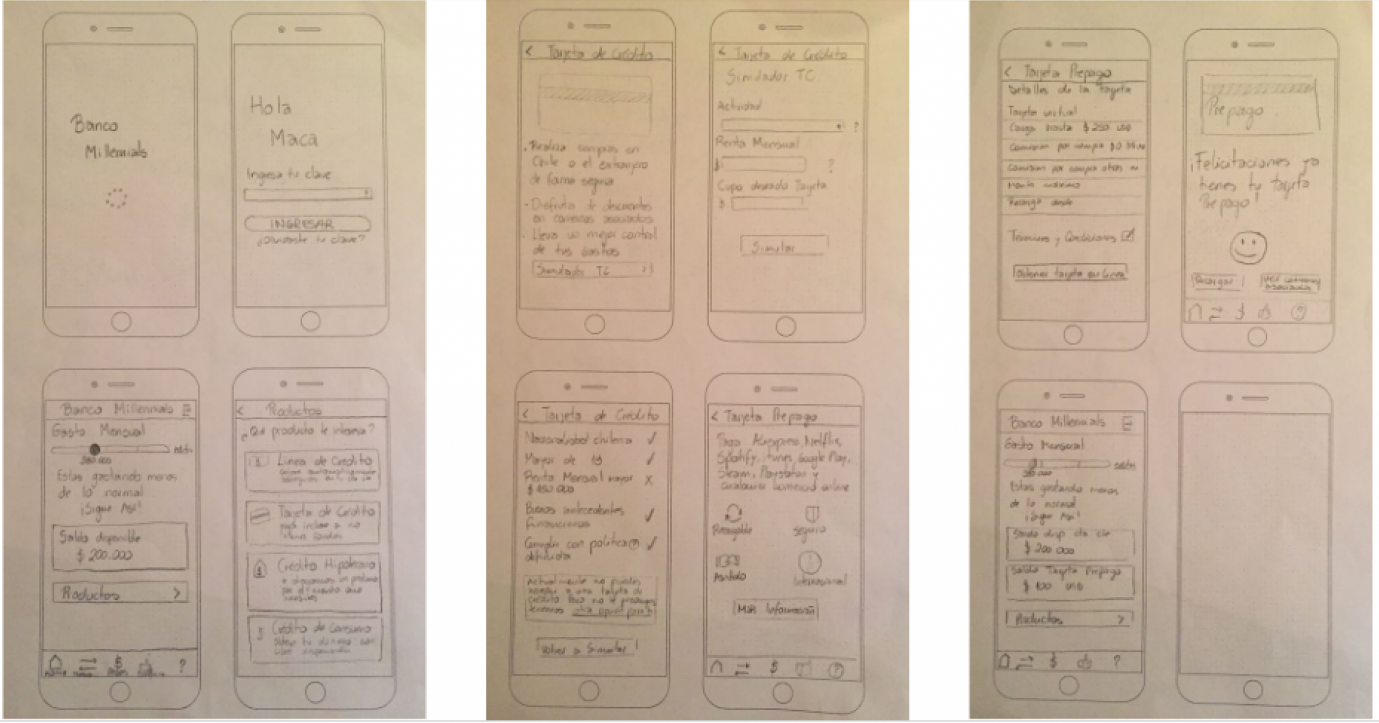 Banco
Millennials
Hola
Maca
Ingresa tu clave
INGRESAR
¿Olvidaste tu clave?
Banco Millennials
Gasto Mensual
380.000
Estas gastando menos
de lo normal
¡Sigue Así!
Saldo disponible
$ 200.000
Productos >
?
< Productos
¿Qué producto te interesa?
Linea de Crédito
Tarjeta de Crédito
Crédito Hipotecario
Crédito de Consumo
< Tarjeta de Crédito
• Realiza compras en
Chile o el extranjero
de forma segura
• Disfruta de descuentos
en comercios asociados
• Lleva un mejor control
de tus gastos
Simulador TC >
< Tarjeta de Crédito
Simulador TC
Actividad
?
Renta Mensual
$ ?
Cupo deseado Tarjeta
$
Simular
< Tarjeta de Crédito
Nacionalidad chilena ✓
Mayor de 18 ✓
Renta Mensual mayor X
$ 450.000
Buenos antecedentes ✓
financieros
Cumplir con política ✓
Actualmente no puedes
tarjeta de
tenemos
Volver a Simular
< Tarjeta Prepago
Paga Aliexpress, Netflix,
Spotify, itunes, Google Play,
Steam, Playstation y
cualquier comercio online
Recargable Seguro
Internacional
Más Información
$
< Tarjeta Prepago
Detalles de la tarjeta
Tarjeta virtual
Carga hasta $ 250 USD
Comision por compra
Comision por compra
Monto máximo
Recarga desde
Términos y Condiciones
Obtener tarjeta en línea
Prepago
¡Felicitaciones ya
tienes tu tarjeta
Prepago
Recargar
Ver
$ ?
Banco Millennials
Gasto Mensual
Estas gastando menos
de lo normal
¡Sigue Así!
Saldo disp cta cte
$ 200 000
Saldo Tarjeta Prepago
$ 100 USD
Productos >
$ ?